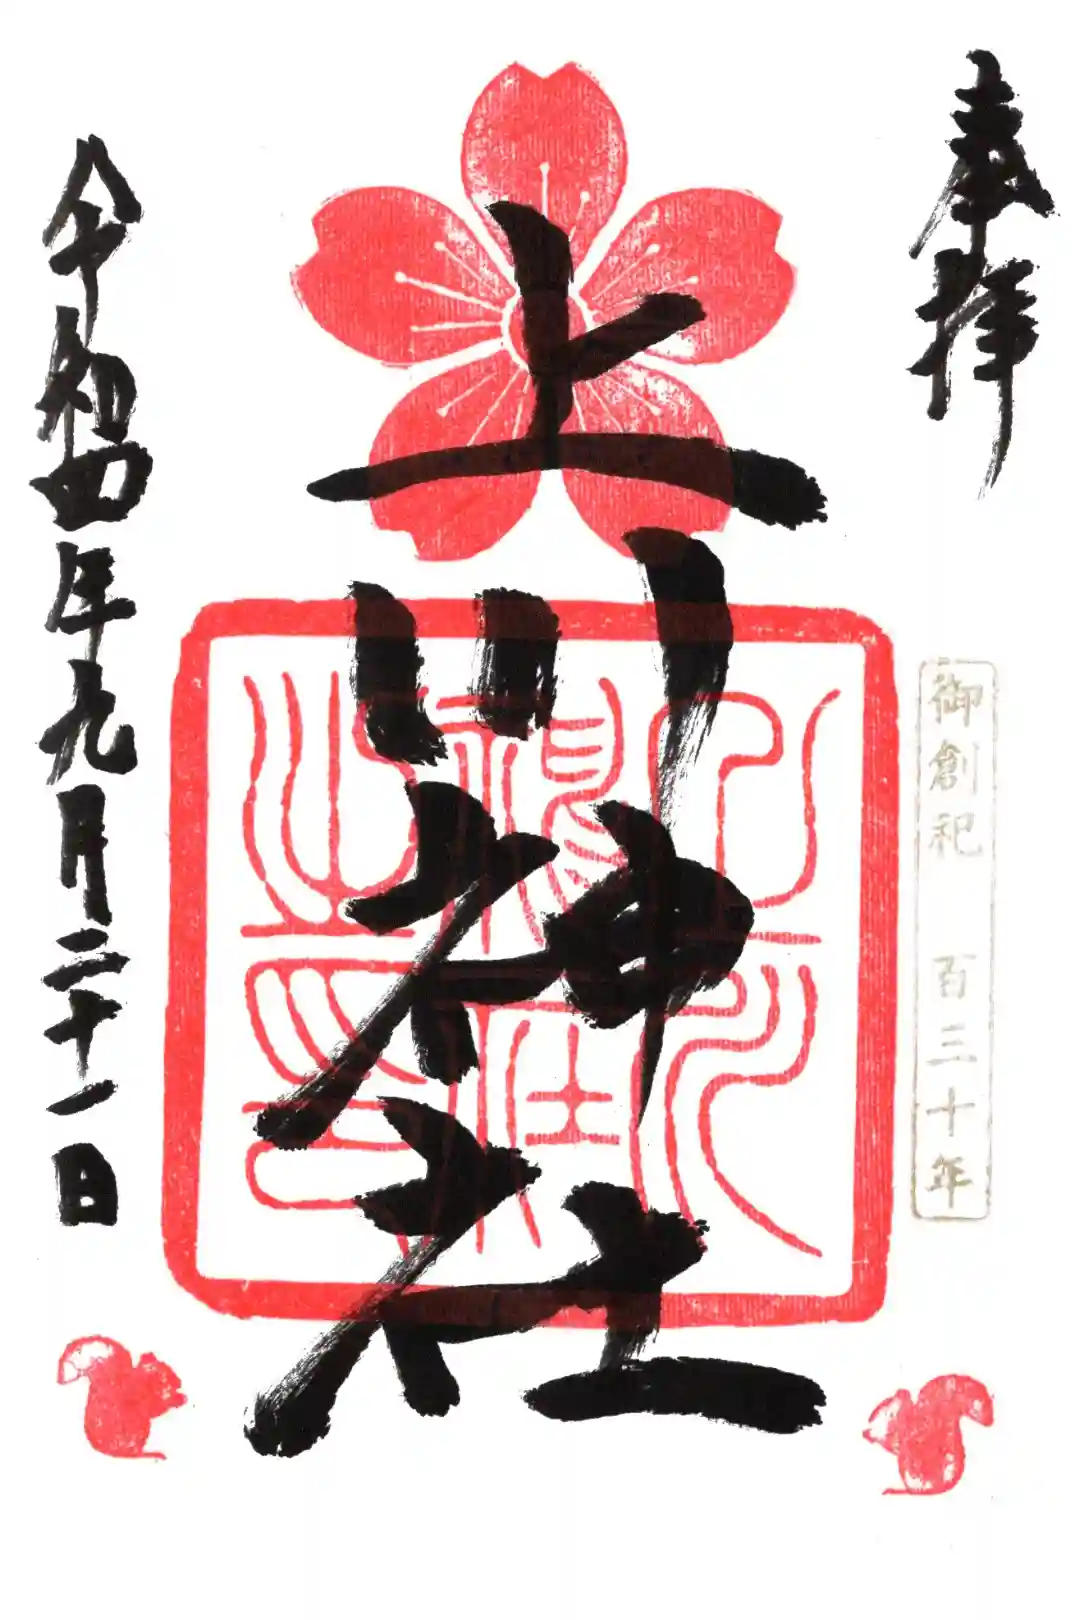 奉拝
御創祀 百三十年
上川神社
上川神社之印
令和四年九月二十一日